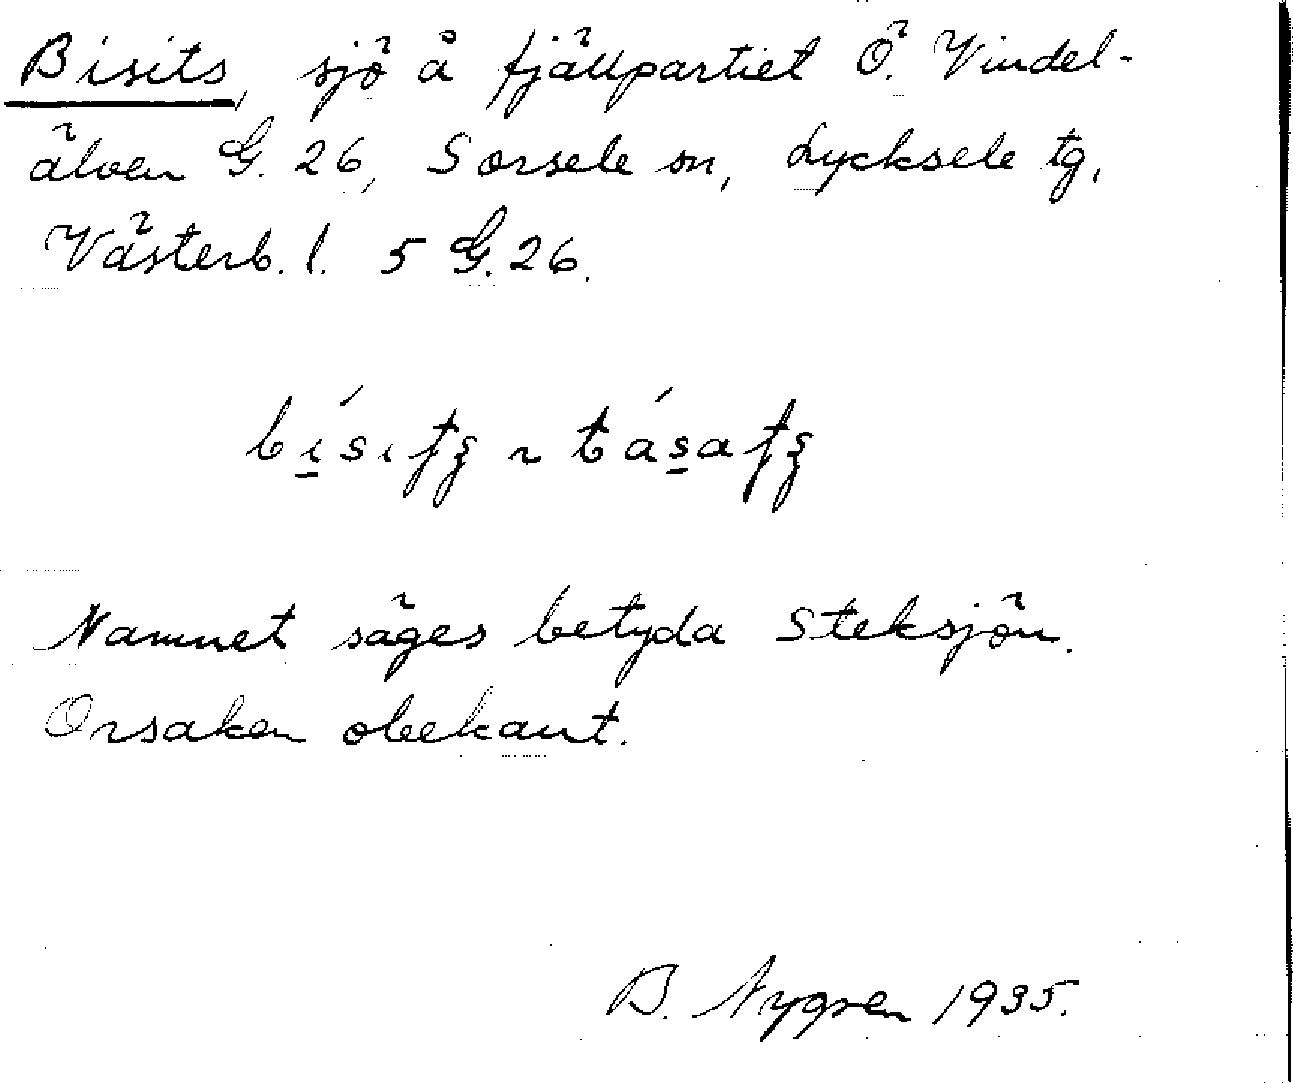 Bisits, sjö å fjällpartiet Ö. Vindel-
älven G. 26, Sorsele sn, Lycksele tg,
Västerb. l. 5 G. 26.
Namnet säges betyda Steksjön.
Orsaken obekant.
B. Nygren 1935.